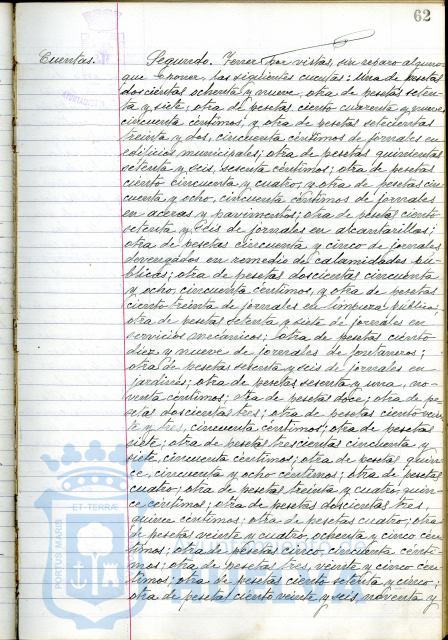 62
Cuentas. Segundo. Tener por vistas, sin reparo alguno
que oponer, las siguientes cuentas: Una de pesetas
doscientas ochenta y nueve, otra de pesetas seten-
ta y siete; otra de pesetas ciento cuarenta y nueve,
cincuenta céntimos; y otra de pesetas setecientas
treinta y dos, cincuenta céntimos de jornales en
edificios municipales; otra de pesetas quinientas
setenta y seis, setenta céntimos; otra de pesetas
ciento cincuenta y cuatro, y otra de pesetas cin
cuenta y ocho, cincuenta céntimos de jornales
en aceras y pavimentos; otra de pesetas ciento
setenta y seis de jornales en alcantarillas;
otra de pesetas cincuenta y cinco de jornales
devengados en remedio de calamidades pú-
blicas; otra de pesetas doscientas cincuenta
y ocho, cincuenta céntimos, y otra de pesetas
ciento treinta de jornales en limpieza pública;
otra de pesetas setenta y siete de jornales en
servicios mecánicos; otra de pesetas ciento
diez y nueve de jornales de fontaneros;
otra de pesetas sesenta y seis de jornales en
jardines; otra de pesetas sesenta y una, no-
venta céntimos; otra de pesetas doce; otra de pe-
setas doscientas tres; otra de pesetas ciento vein-
te y tres, cincuenta céntimos; otra de pesetas
siete; otra de pesetas trescientas cincuenta y
siete, cincuenta céntimos; otra de pesetas quin-
ce, cincuenta y ocho céntimos; otra de pesetas
cuatro; otra de pesetas treinta y cuatro, quin-
ce céntimos; otra de pesetas doscientas tres,
quince céntimos; otra de pesetas cuatro; otra
de pesetas veinte y cuatro, ochenta y cinco cén-
timos; otra de pesetas cinco, cincuenta cénti-
mos; otra de pesetas tres, veinte y cinco cén-
timos; otra de pesetas ciento setenta y cinco;
otra de pesetas ciento veinte y seis, noventa y
ET TERRÆ
PORTUS MARIS